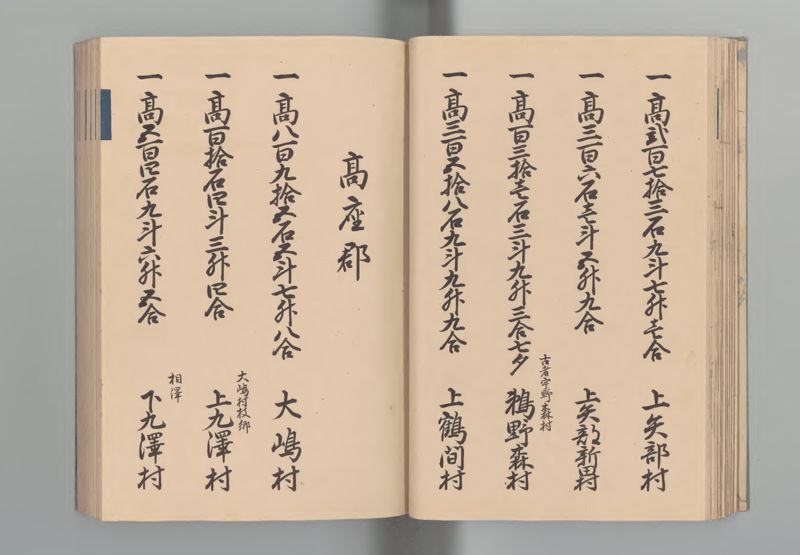 一高弐百七拾三石九斗七升壱合　上矢部村
一高三百六石壱斗五升九合　上矢部新田村
古者宇野森村
一高百三拾壱石三斗九升三合七夕　鵜野森村
一高三百五拾八石九斗九升九合　上鶴間村
高座郡
一高八百九拾五石五斗七升八合　大嶋村
大嶋村枝郷
一高百拾石四斗三升四合　上九澤村
相澤
一高五百四石九斗六升五合　下九澤村